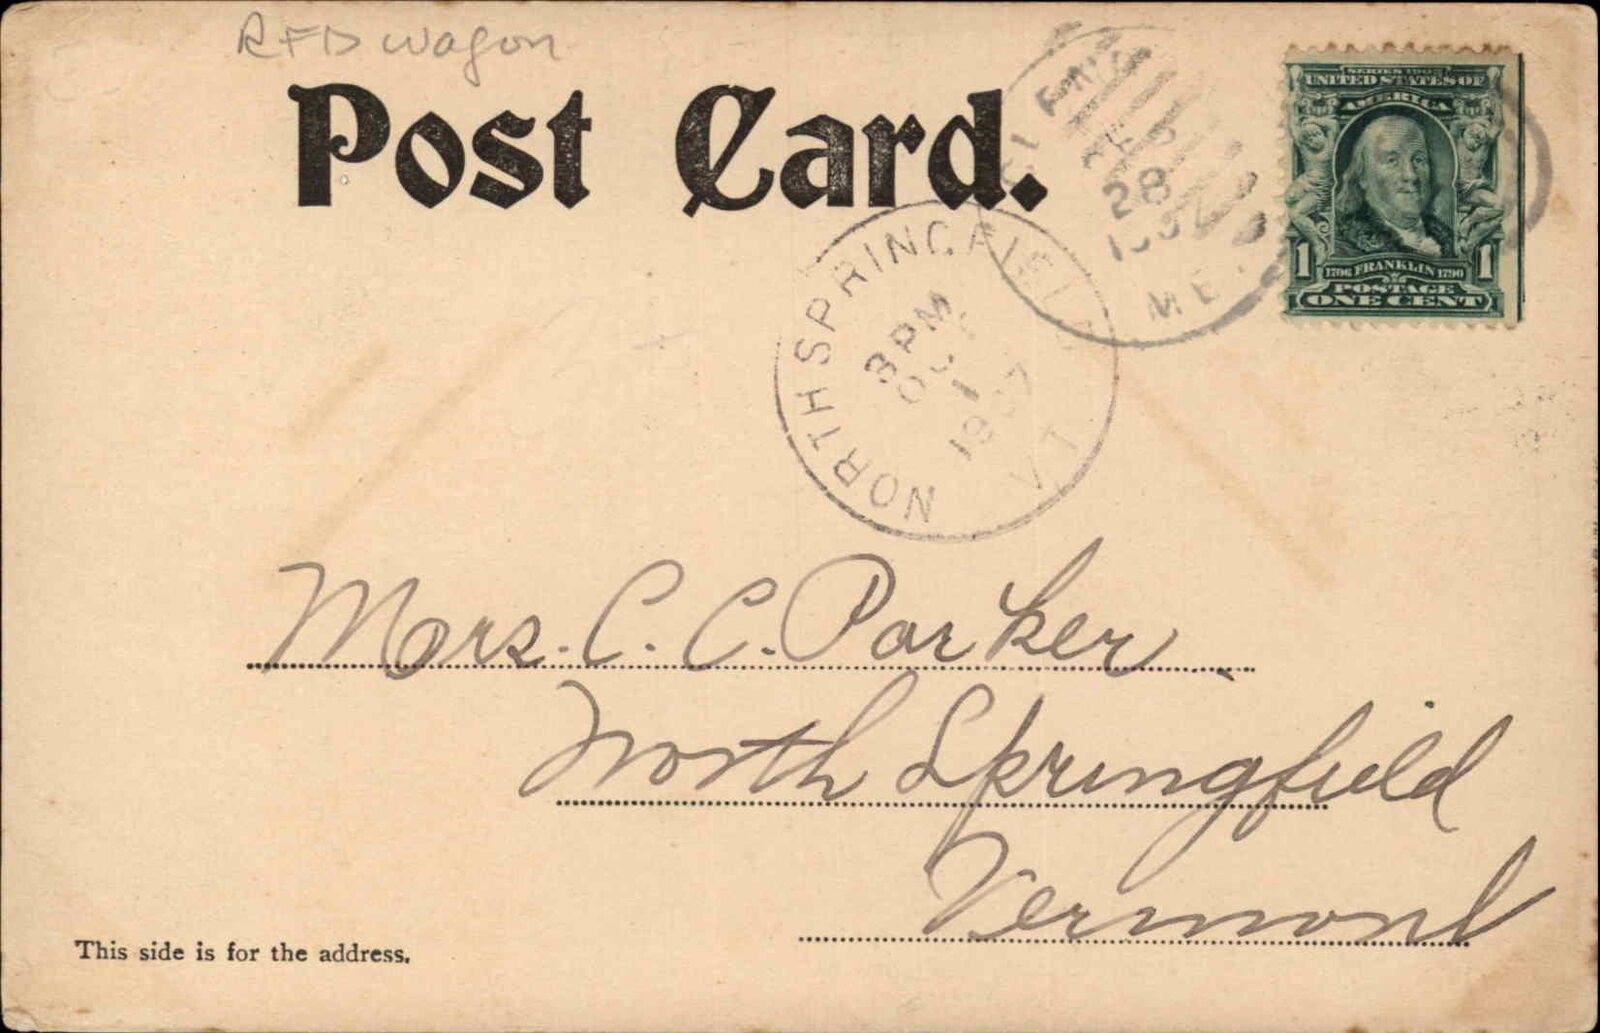 RFD wagon
Post Card.
SERIES 1902
UNITED STATES OF
AMERICA
1 1
1706 FRANKLIN 1790
POSTAGE
ONE CENT
28
ME.
NORTH SPRINGFIELD
VT
8 PM
OCT
1
1907
Mrs. C. C. Parker
North Springfield
Vermont
This side is for the address.